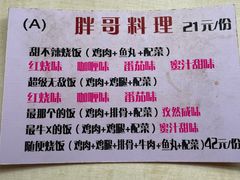 (A) 胖哥料理 21元/份
甜不辣烧饭(鸡肉+鱼丸+配菜)
红烧味 咖喱味 番茄味 蜜汁甜味
超级无敌饭(鸡肉+鸡腿+配菜)
红烧味 咖喱味 番茄味
最那个的饭(鸡肉+排骨+配菜)孜然咸味
最牛X的饭(鸡肉+鸡腿+配菜)蜜汁甜味
随便烧饭(鸡肉+鸡腿+排骨+牛肉+鱼丸+配菜)42元/份